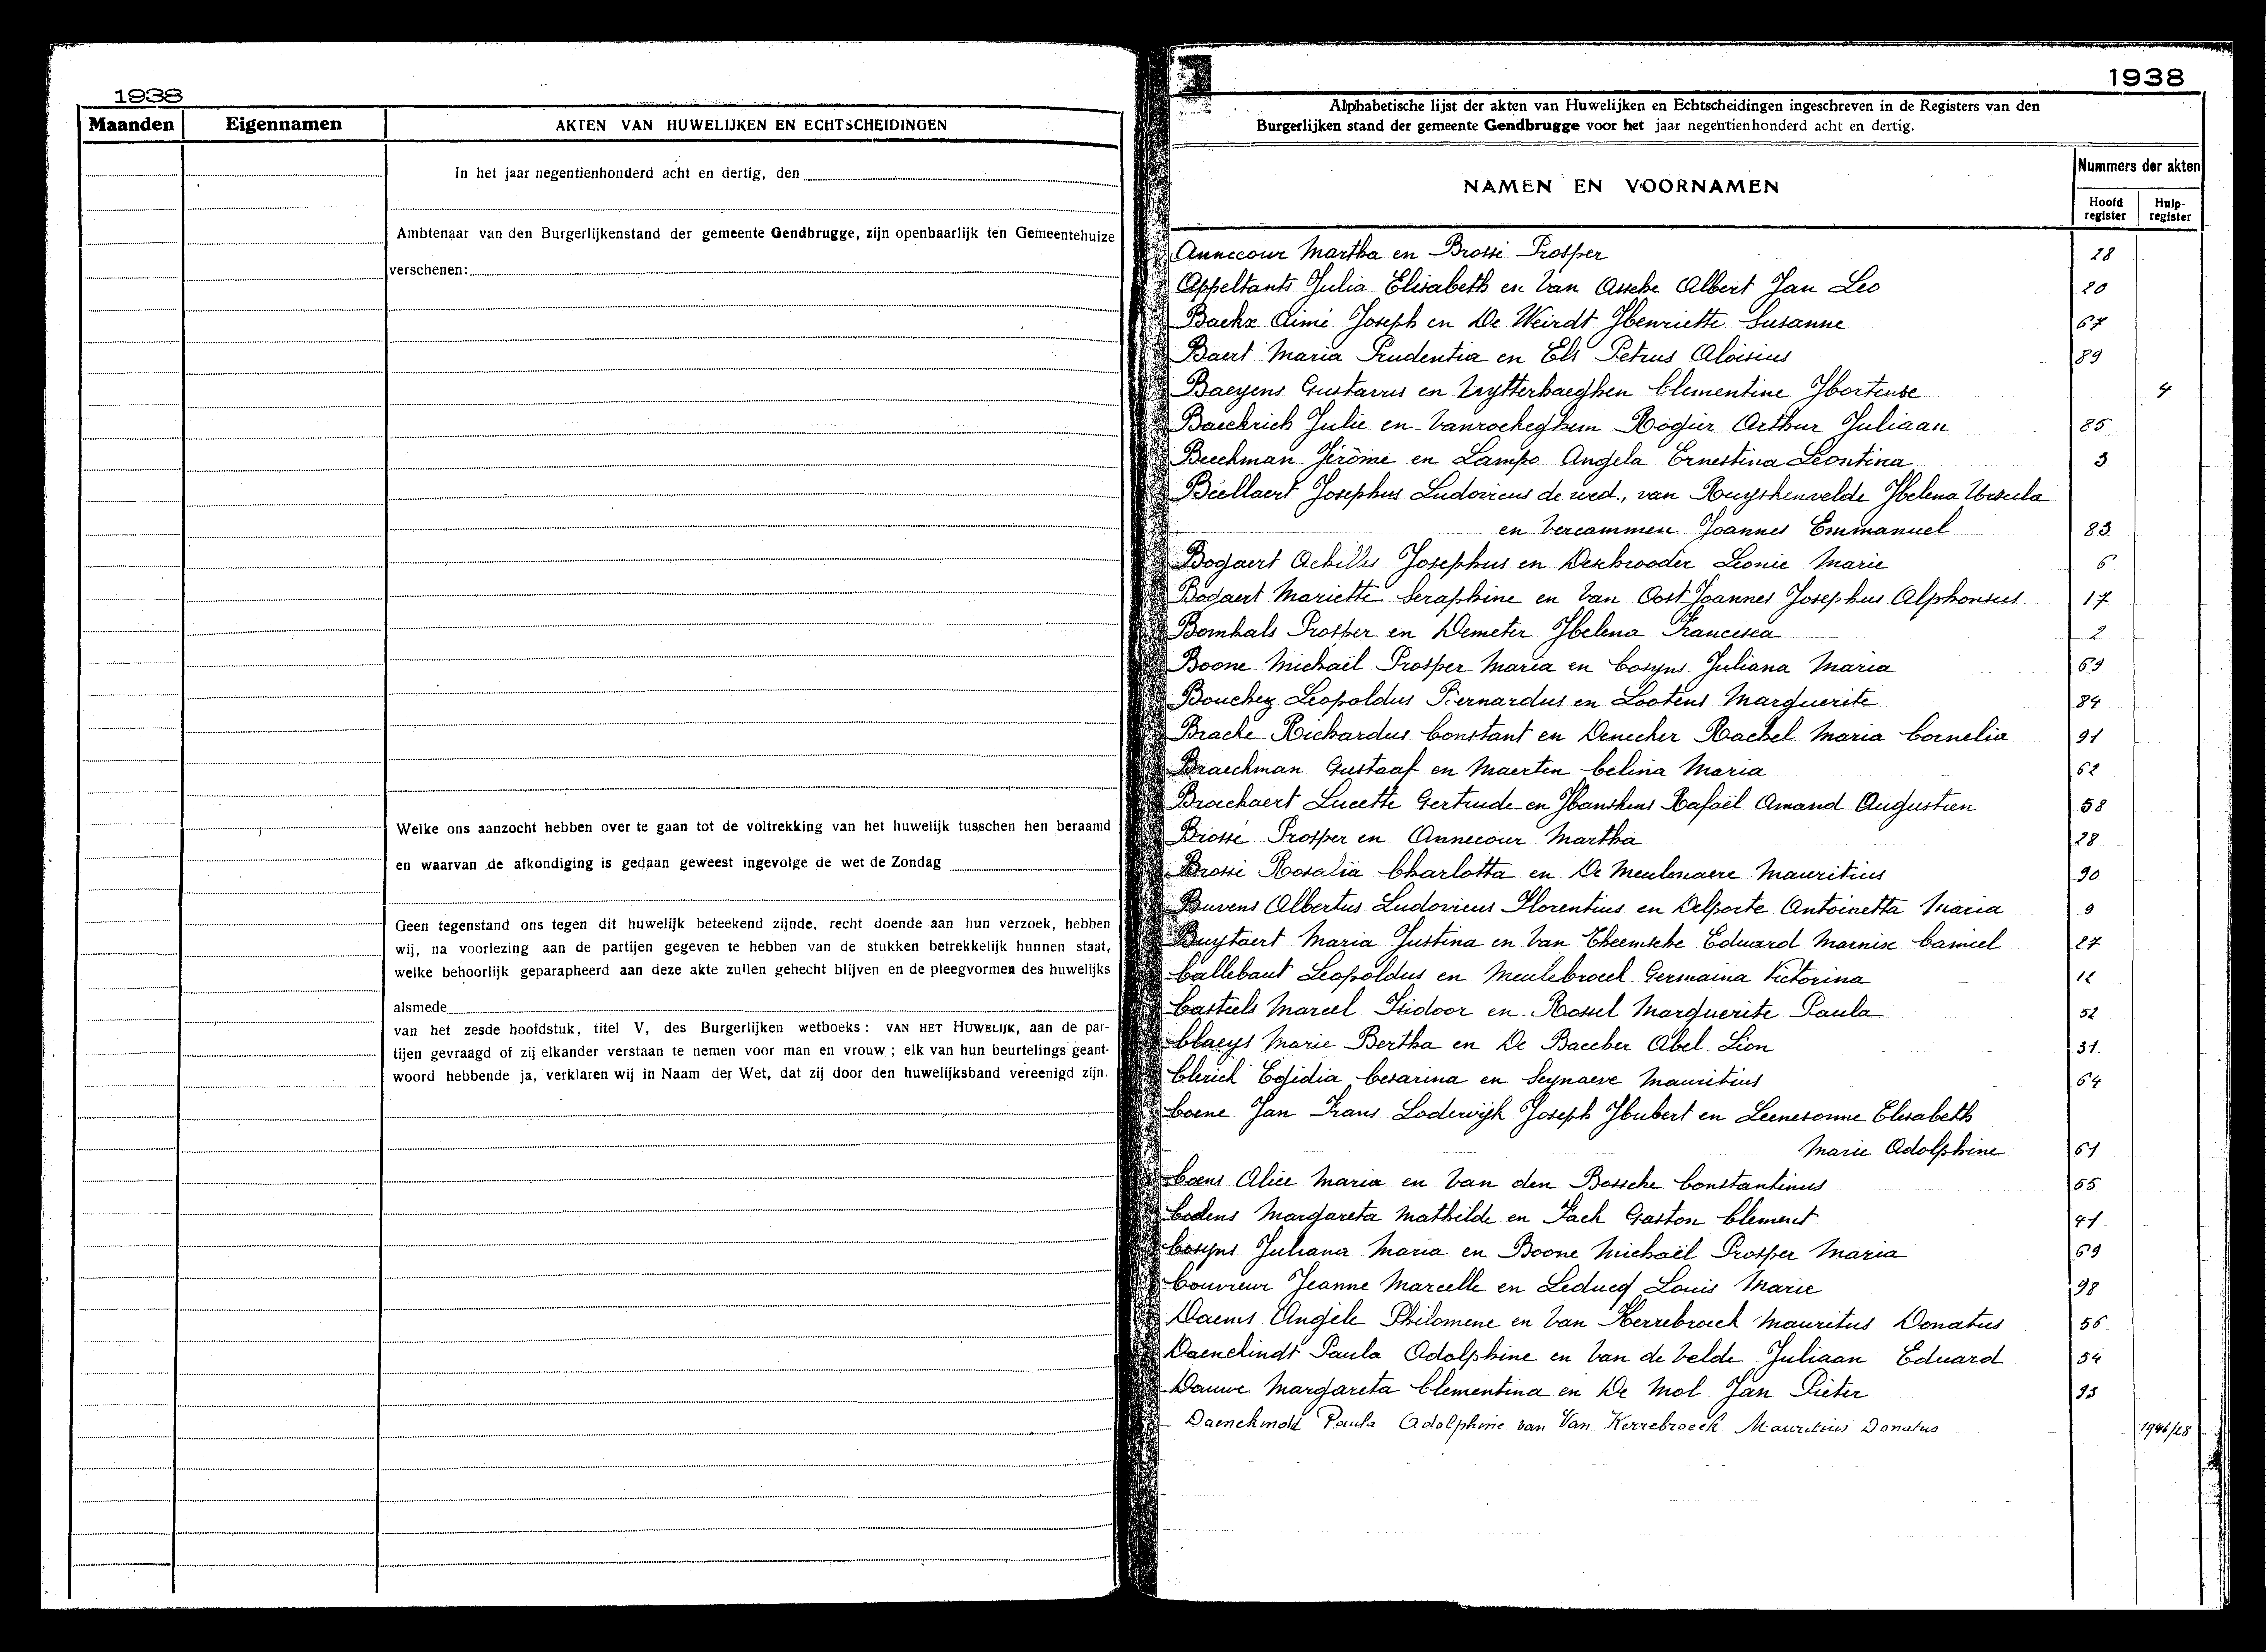 1938
Maanden Eigennamen AKTEN VAN HUWELIJKEN EN ECHTSCHEIDINGEN
In het jaar negentienhonderd acht en dertig, den
Ambtenaar van den Burgerlijkenstand der gemeente Gendbrugge, zijn openbaarlijk ten Gemeentehuize
verschenen:
Welke ons aanzocht hebben over te gaan tot de voltrekking van het huwelijk tusschen hen beraamd
en waarvan de afkondiging is gedaan geweest ingevolge de wet de Zondag
Geen tegenstand ons tegen dit huwelijk beteekend zijnde, recht doende aan hun verzoek, hebben
wij, na voorlezing aan de partijen gegeven te hebben van de stukken betrekkelijk hunnen staat,
welke behoorlijk geparapheerd aan deze akte zullen gehecht blijven en de pleegvormen des huwelijks
alsmede
van het zesde hoofdstuk, titel V, des Burgerlijken wetboeks: VAN HET HUWELIJK, aan de par-
tijen gevraagd of zij elkander verstaan te nemen voor man en vrouw; elk van hun beurtelings geant-
woord hebbende ja, verklaren wij in Naam der Wet, dat zij door den huwelijksband vereenigd zijn.
1938
Alphabetische lijst der akten van Huwelijken en Echtscheidingen ingeschreven in de Registers van den
Burgerlijken stand der gemeente Gendbrugge voor het jaar negentienhonderd acht en dertig.
NAMEN EN VOORNAMEN
Nummers der akten
Hoofd register Hulp-register
Annecour Martha en Brossé Prosper 28
Appeltants Julia Elisabeth en Van Assche Albert Jan Leo 20
Backx Aimé Joseph en De Weirdt Henriette Susanne 67
Baert Maria Prudentia en Els Petrus Aloïsius 89
Baeyens Gustavus en Uytterhaeghen Clementine Hortense 4
Baeckrich Julie en Vanrocheghem Rogier Arthur Juliaan 85
Beeckman Jérôme en Lampo Angela Ernestina Leontina 3
Bellaert Josephus Ludovicus de wed., van Ruyskensvelde Helena Ursula
en Vercammen Joannes Emmanuel 83
Bogaert Achilles Josephus en Deschrooder Leonie Marie 6
Bogaert Mariette Seraphine en Van Oost Joannes Josephus Alphonsus 17
Bomhals Prosper en Demeter Helena Francesca 2
Boone Michaël Prosper Maria en Cosyns Juliana Maria 69
Bouchez Leopoldus Bernardus en Lootens Marguerite 84
Brache Richardus Constant en Denecker Rachel Maria Cornelia 91
Braeckman Gustaaf en Maerten Celina Maria 62
Braeckaert Lucette Gertrude en Hanskens Rafaël Amand Augustien 58
Brossé Prosper en Annecour Martha 28
Brossé Rosalia Charlotta en De Meulenaere Mauritius 90
Buvens Albertus Ludovicus Florentius en Delporte Antoinetta Maria 9
Buytaert Maria Justina en Van Theemsche Eduard Marnix Camiel 27
Callebaut Leopoldus en Meulebroeck Germaina Victorina 12
Casteels Marcel Isidoor en Rossel Marguerite Paula 52
Claeys Marie Bertha en De Baecker Abel Léon 31.
Clerick Egidia Cesarina en Seynaeve Mauritius 64
Coene Jan Frans Lodewijk Joseph Hubert en Leenesonne Elisabeth
Marie Adolphine 61
Coens Alice Maria en Van den Bossche Constantinus 65
Coolens Margareta Mathilde en Pach Gaston Clement 41.
Cosyns Juliana Maria en Boone Michaël Prosper Maria 69
Couvreur Jeanne Marcelle en Leducq Louis Marie 98
Daems Angèle Philomene en Van Kerrebroeck Mauritus Donatus 56.
Daenekindt Paula Adolphine en Van de Velde Juliaan Eduard 54
Dauwe Margareta Clementina en De Mol Jan Pieter 95
Daenekindt Paula Adolphine van Van Kerrebroeck Mauritius Donatus 1946/28